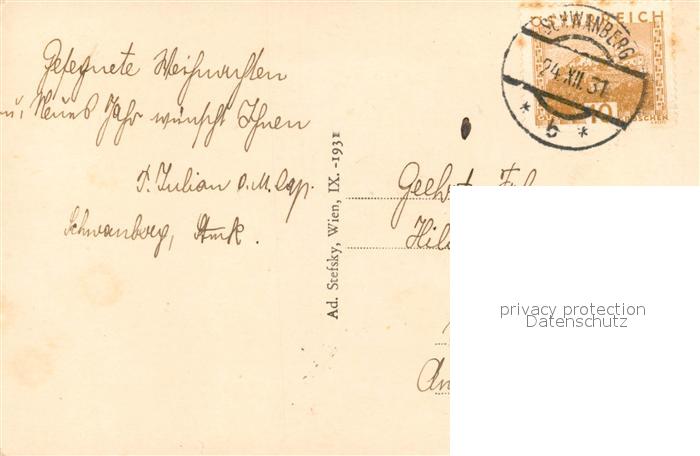 Gesegnete Weihnachten
u. Neues Jahr wünscht Ihnen
P. Julian O. M. Cap.
Schwanberg, Stmk.
Ad. Stefsky, Wien, IX. -1931
ÖSTERREICH
SCHWANBERG
24.XII.31
* b *
10 GROSCHEN
Geehrt. Frl.
Hil
An
privacy protection
Datenschutz